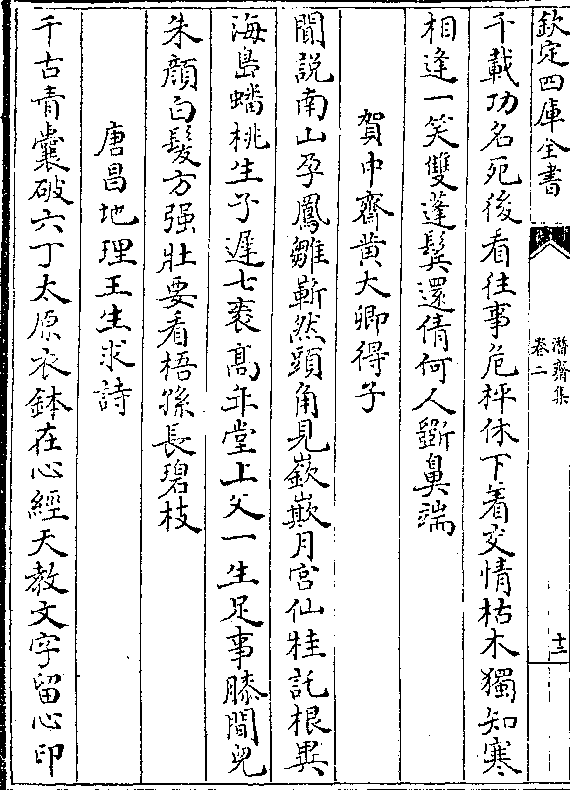 欽定四庫全書
潛齋集
卷二
十二
千載功名死後看往事危枰休下着交情枯木獨知寒
相逢一笑雙蓬鬂還倩何人斵鼻端
賀中齋黄大卿得子
聞說南山孕鳳雛嶄然頭角見嶔𡾟月宫仙桂託根異
海島蟠桃生子遲七袠髙年堂上父一生足事膝間兒
朱顔白髪方强壯要看梧孫長碧枝
唐昌地理王生求詩
千古青囊破六丁太原衣鉢在心經天教文字留心印